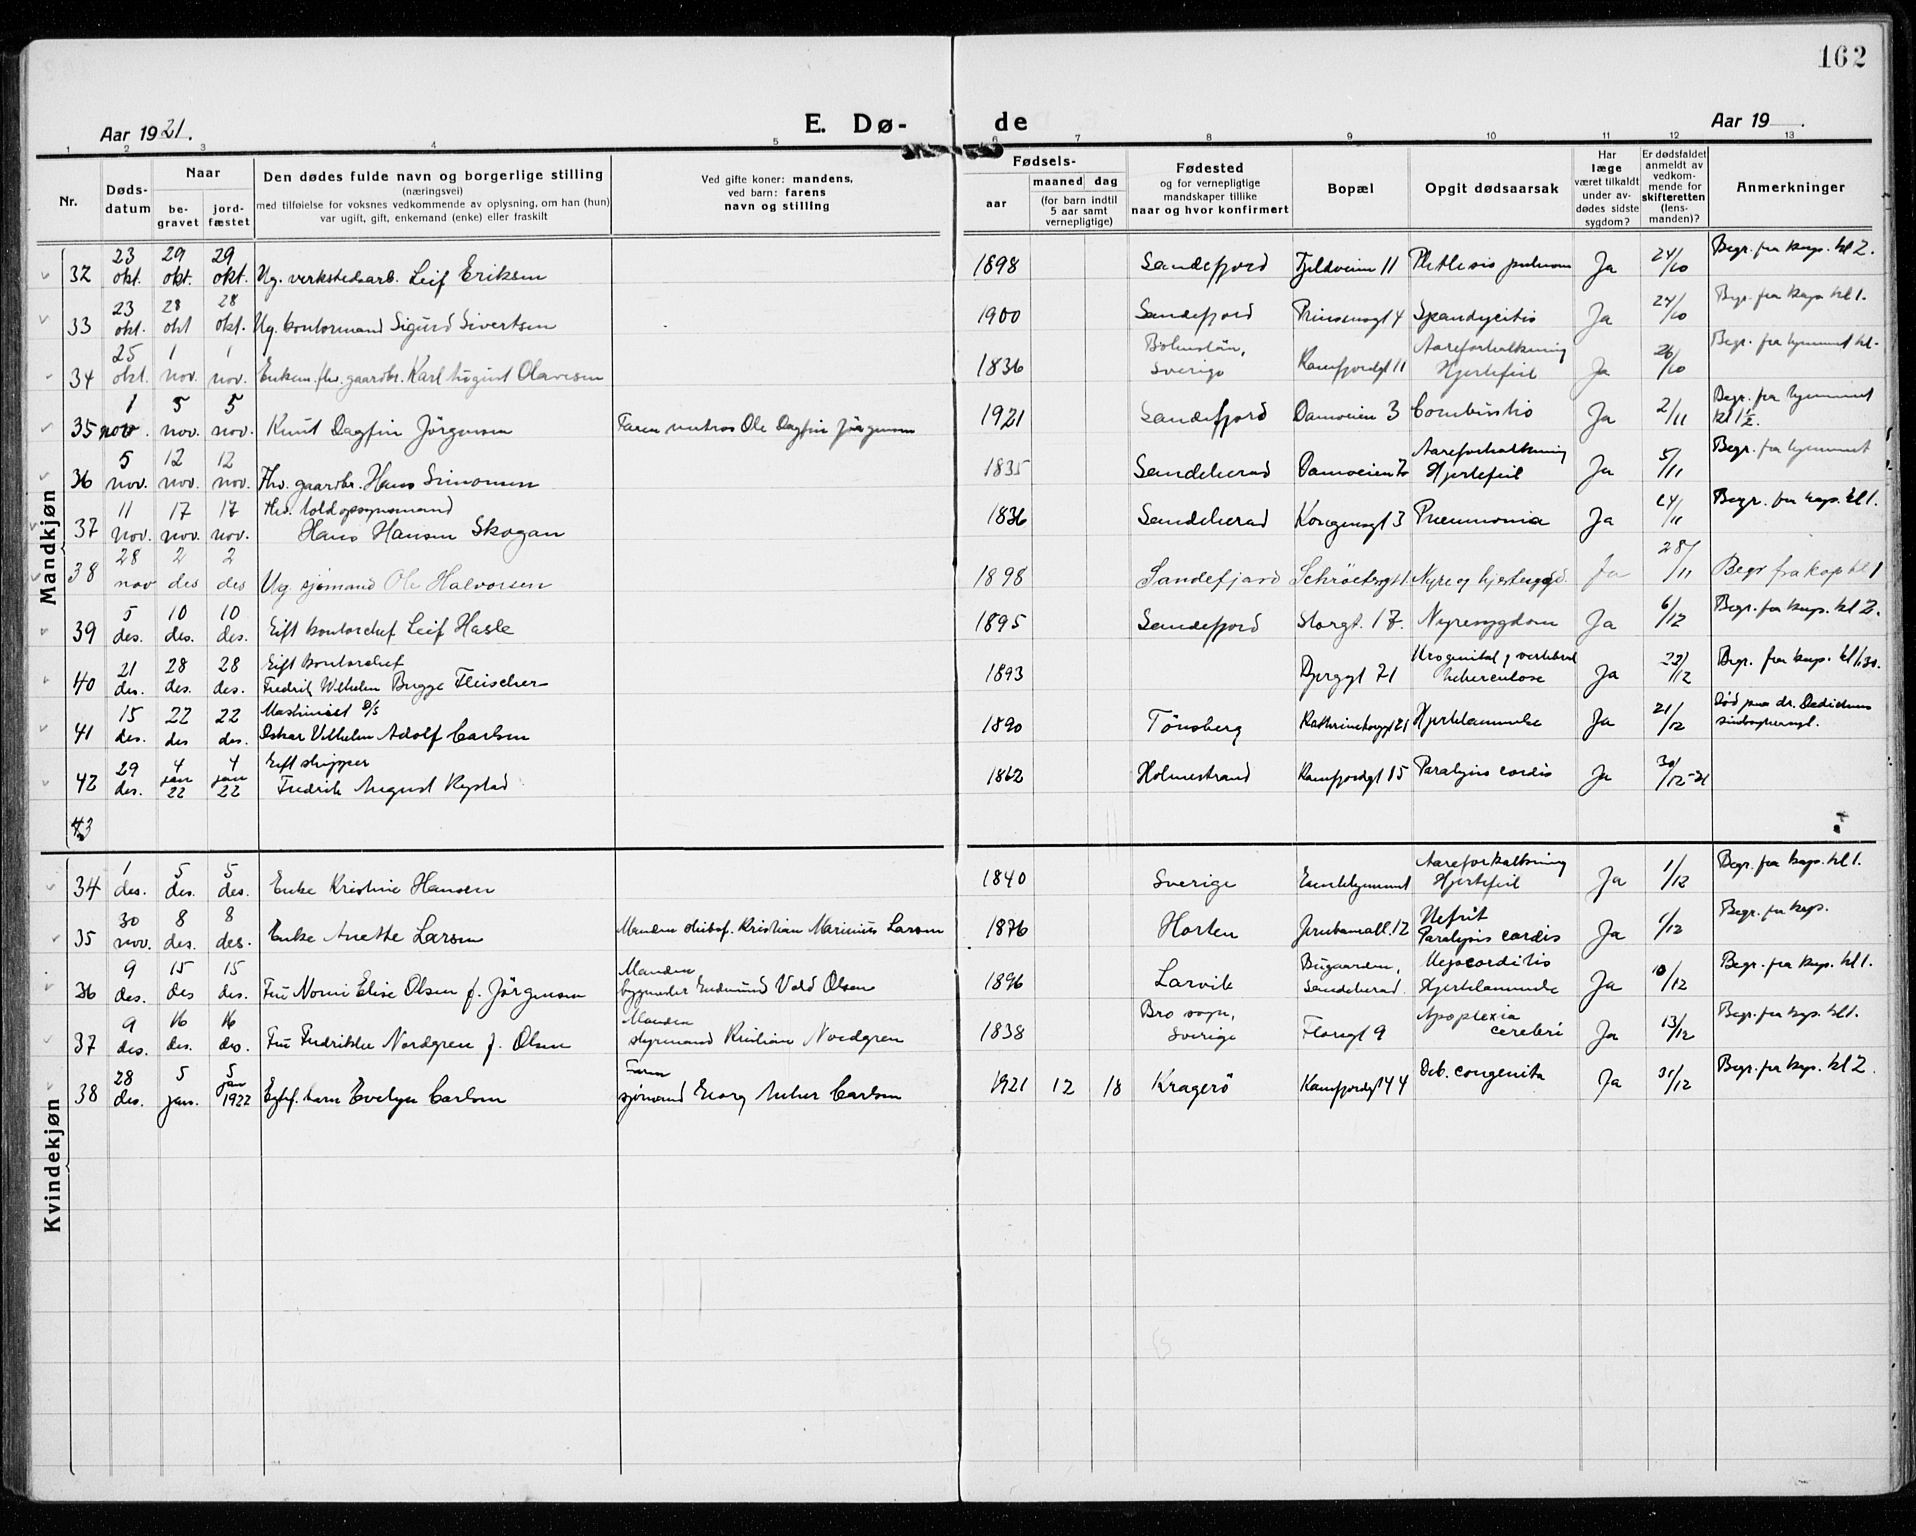 162
Aar 1921.
E. Dø-
de
Aar 19 .
1 2 3 4 5 6 7 8 9 10 11 12 13
Nr.
Døds-
datum
Naar
be-
gravet
jord-
fæstet
Den dødes fulde navn og borgerlige stilling
(næringsvei)
med tilføielse for voksnes vedkommende av oplysning, om han (hun)
var ugift, gift, enkemand (enke) eller fraskilt
Ved gifte koner: mandens,
ved barn: farens
navn og stilling
Fødsels-
aar
maaned dag
(for barn indtil
5 aar samt
vernepligtige)
Fødested
og for vernepligtige
mandskaper tillike
naar og hvor konfirmert
Bopæl
Opgit dødsaarsak
Har
læge
været tilkaldt
under av-
dødes sidste
sygdom?
Er dødsfaldet
anmeldt av
vedkom-
mende for
skifteretten
(lens-
manden)?
Anmerkninger
Mandkjøn
32 23 okt. 29 okt. 29 okt. Ug. verkstedsarb. Leif Eriksen 1898 Sandefjord Fjeldveien 11 Ja 24/10 Begr. fra kap. kl 2.
33 23 okt. 28 okt 28 okt. Ug. kontormand Sigurd Sivertsen 1900 Sandefjord Prinsensgt 4 Ja 24/10 Begr. fra kap. kl 1.
34 25 okt. 1 nov. 1 nov. Enkem. fhv. gaardbr. Karl August Olavesen 1836 Sverige Kamfjordgt 11 Aareforkalkning Hjertefeil Ja 26/10 Begr. fra hjemmet kl-
35 1 nov. 5 nov. 5 nov. Knut Dagfin Jørgensen Faren matros Ole Dagfin Jørgensen 1921 Sandefjord Damveien 3 Combustio Ja 2/11 Begr. fra hjemmet kl 1½.
36 5 nov. 12 nov. 12 nov. Fhv. gaardbr. Hans Simonsen 1835 Sandeherad Damveien Aareforkalkning Hjertefeil Ja 5/11 Begr. fra hjemmet
37 11 nov. 17 nov. 17 nov. Fhv. toldopsynsmand Hans Hansen Skogan 1836 Sandeherad Kongensgt 3 Pneumonia Ja 14/11 Begr. fra kap. kl 1.
38 28 nov 2 des 2 des Ug. sjømand Ole Halvorsen 1898 Sandefjord Schrøetersgt 1. Nyre og hjertesygd. Ja 28/11 Begr fra kap kl 1
39 5 des. 10 des. 10 des. Gift kontorchef Leif Hasle 1895 Sandefjord Storgt. 17. Nyresygdom Ja 6/12 Begr. fra kap. kl 2.
40 21 des. 28 des. 28 des. Gift kontorchef Fredrik Wilhelm Bugge Fleischer 1893 Bjerggt 21 Urogenital g vertebral tuberculose Ja 22/12 Begr. fra kap. kl 1.30.
41 15 des. 22 des 22 des. Maskinist D/S Oskar Vilhelm Adolf Carlsen 1890 Tönsberg Hjertelammelse Ja 21/12 Død paa dr. Dedichens sindssykeasyl.
42 29 des. 4 jan 22 4 jan 22 Gift skipper Fredrik August Rystad 1862 Holmestrand Kamfjordgt 15 Paralysis cordis Ja 30/12-21
43
Kvindekjøn
34 1 des. 5 des. 5 des. Enke Kristine Hansen 1840 Sverige Enkehjemmet Aareforkalkning Hjertefeil Ja 1/12 Begr. fra kap. kl 1.
35 30 nov. 8 des. 8 des. Enke Anette Larsen Manden skibsf. Kristian Marinius Larsen 1876 Horten Jernbanall. 12 Nefrit Paralysis cordis Ja 1/12 Begr. fra kap.
36 9 des. 15 des 15 des. Fru Norni Elise Olsen f. Jørgensen Manden bygmester Gudmund Vold Olsen 1896 Larvik Bugaarden, Sandeherad. Myocorditis Hjertelammelse Ja 10/12 Begr. fra kap. kl 1.
37 9 des. 16 des. 16 des. Fru Fredrikke Nordgren f. Olsen Manden styrmand Kristian Nordgren 1838 Bro sogn, Sverige Floragt 9 Apoplexia cerebri Ja 13/12 Begr. fra kap. kl 1.
38 28 des. 5 jan. 5 jan 1922 Egtef. barn Evelyn Carlsen Faren sjømand Georg Arthur Carlsen 1921 12 18 Kragerö Kamfjordgt 44 Deb. congenita Ja 31/12 Begr. fra kap. kl 2.